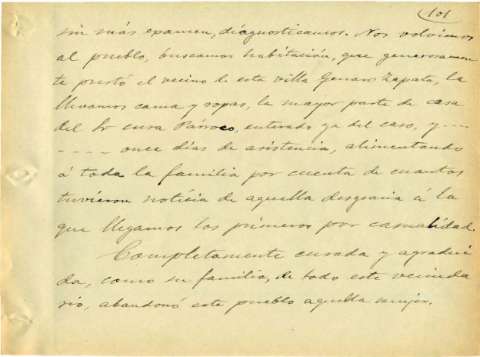 101
sin más examen, diagnosticamos. Nos volvimos
al pueblo, buscamos habitación, que generosamen
te prestó el vecino de esta villa Genaro Zapata, la
llevamos cama y ropas, la mayor parte de casa
del Sr cura Párroco, enterado ya del caso, y ----
----- once días de asistencia, alimentando
á toda la familia por cuenta de cuantos
tuvieron noticia de aquella desgracia á la
que llegamos los primeros por casualidad.
Completamente curada y agradeci
da, como su familia, de todo este vecinda
rio, abandonó este pueblo aquella mujer.